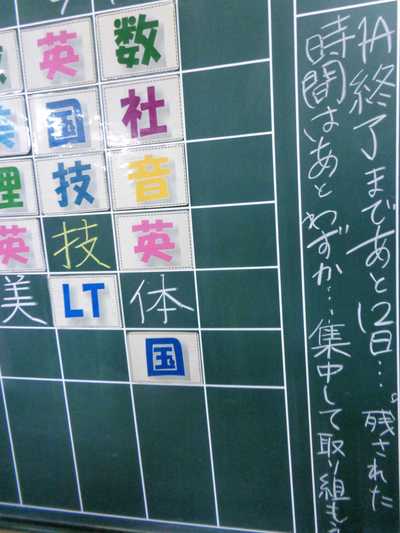 1A終了まであと12日…。残された
時間はあとわずか…集中して取り組もう
英 数
国 社
理 技 音
英 技 英
美 LT 体
国